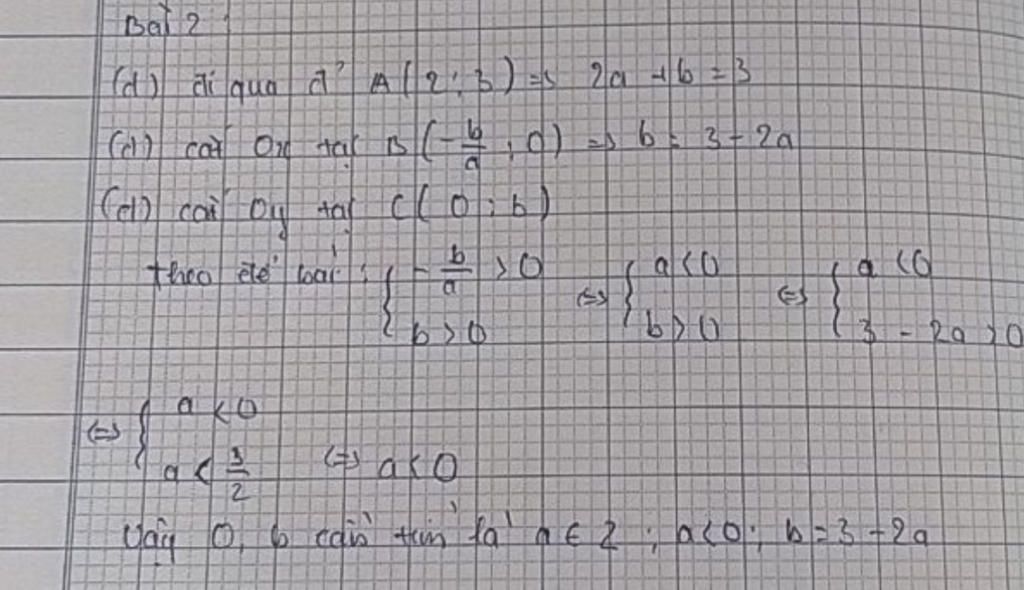 Bài 2
(d) đi qua đ' A(2;3) => 2a + b = 3
(d) cắt Ox tại B(-b/a, 0) => b = 3 - 2a
(d) cắt Oy tại C(0; b)
theo đề bài: { -b/a > 0 <=> { a < 0 <=> { a < 0
b > 0 b > 0 3 - 2a > 0
<=> { a < 0
a < 3/2 <=> a < 0
Vậy a, b cần tìm là a ∈ Z; a < 0; b = 3 - 2a